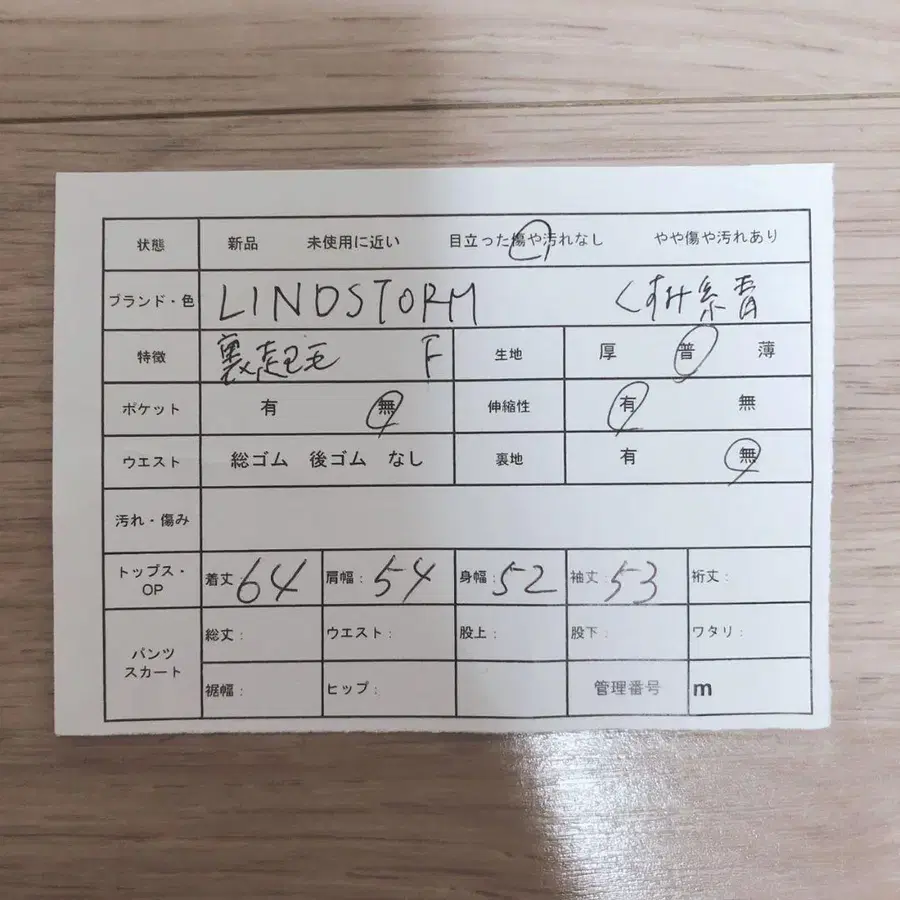 状態 新品 未使用に近い 目立った傷や汚れなし やや傷や汚れあり
ブランド・色 LINDSTORM くすみ系青
特徴 裏起毛 F 生地 厚 普 薄
ポケット 有 無 伸縮性 有 無
ウエスト 総ゴム 後ゴム なし 裏地 有 無
汚れ・傷み
トップス・OP 着丈 64 肩幅: 54 身幅: 52 袖丈: 53 裄丈:
パンツ スカート 総丈: ウエスト: 股上: 股下: ワタリ:
裾幅: ヒップ: 管理番号 m